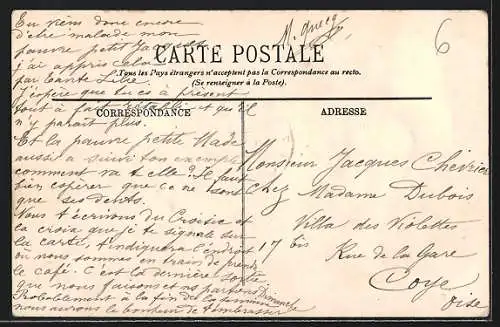 Tu viens donc encore
d'être malade mon
pauvre petit Jacques
j'ai appris cela
par tante
J'espère que tu es à présent
tout à fait rétabli et qu'il
n'y parait plus.
Et la pauvre petite Made
aussi a suivi ton exemple
comment va t elle? Il faut
bien espérer que ce ne sont
que ses dents.
Nous t'écrivons du Croisic et
la croix que je te signale sur
la carte, t'indiquera l'endroit
où nous sommes en train de prendre
le café. C'est la dernière sortie
que nous faisons et nous partons Dimanche
Probablement à la fin de la semaine
nous aurons le bonheur de t'embrasser
CARTE POSTALE
Tous les Pays étrangers n'acceptent pas la Correspondance au recto.
(Se renseigner à la Poste).
CORRESPONDANCE
ADRESSE
6
Monsieur Jacques Chevrier
Chez Madame Dubois
Villa des Violettes
17 bis Rue de la Gare
Coye
Oise